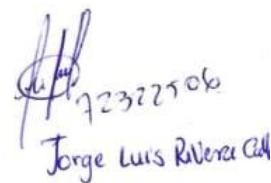 72322506
Jorge Luis Rivera